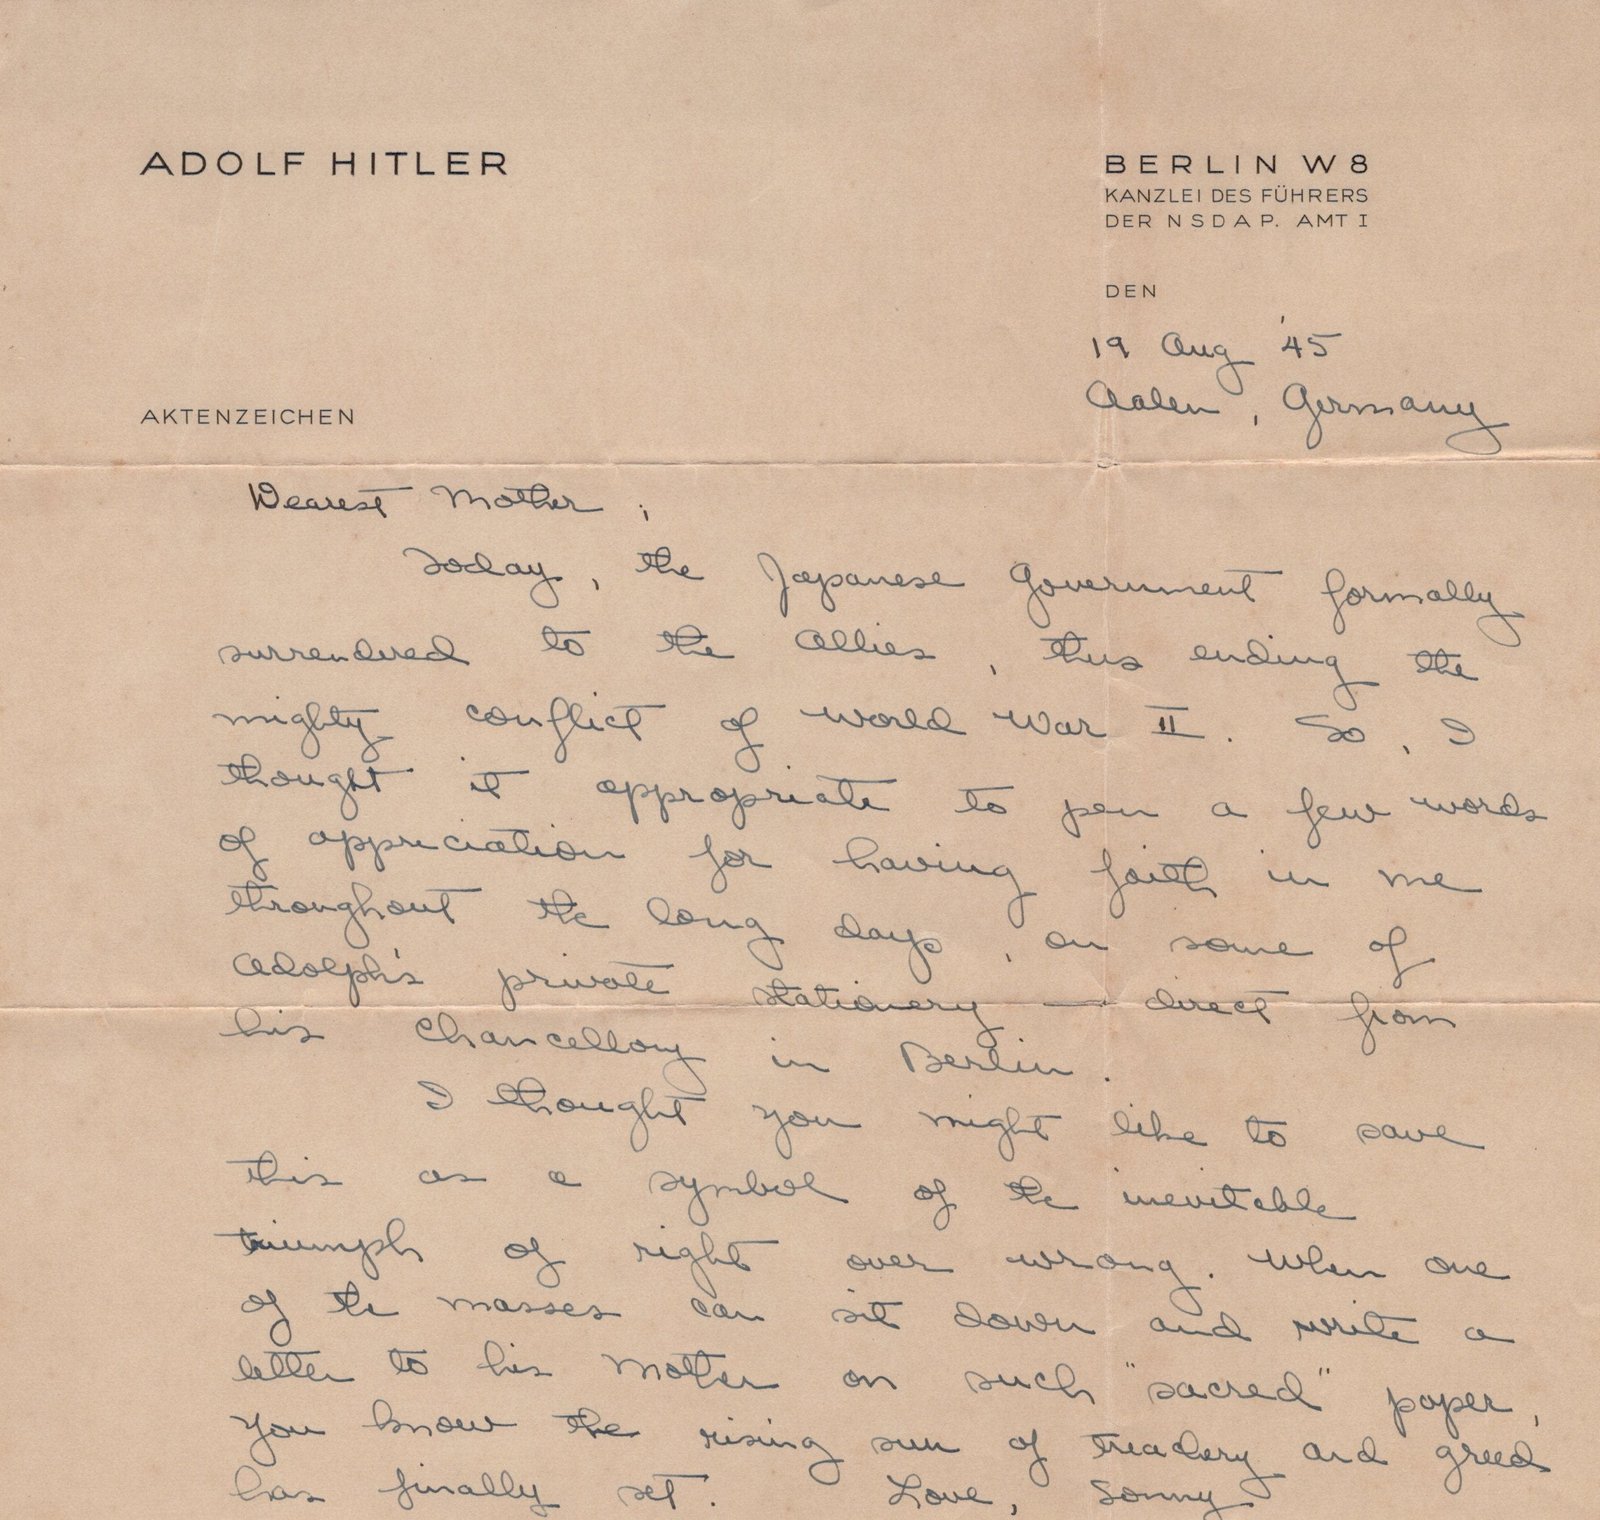 ADOLF HITLER
BERLIN W 8
KANZLEI DES FÜHRERS
DER NSDAP. AMT I
DEN
19 Aug '45
Aalen, Germany
AKTENZEICHEN
Dearest Mother;
Today, the Japanese Government formally
surrendered to the Allies, thus ending the
mighty conflict of World War II. So, I
thought it appropriate to pen a few words
of appreciation for having faith in me
throughout the long days, on some of
Adolph's private stationery — direct from
his Chancellory in Berlin.
I thought you might like to save
this as a symbol of the inevitable
triumph of right over wrong. When one
of the masses can sit down and write a
letter to his Mother on such "sacred" paper,
you know the rising sun of treachery and greed
has finally set. Love, Sonny